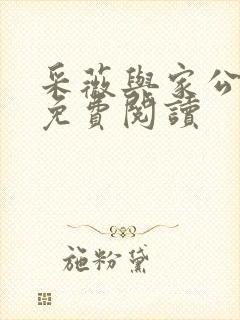 采薇與家公
免費閱讀
施粉黛